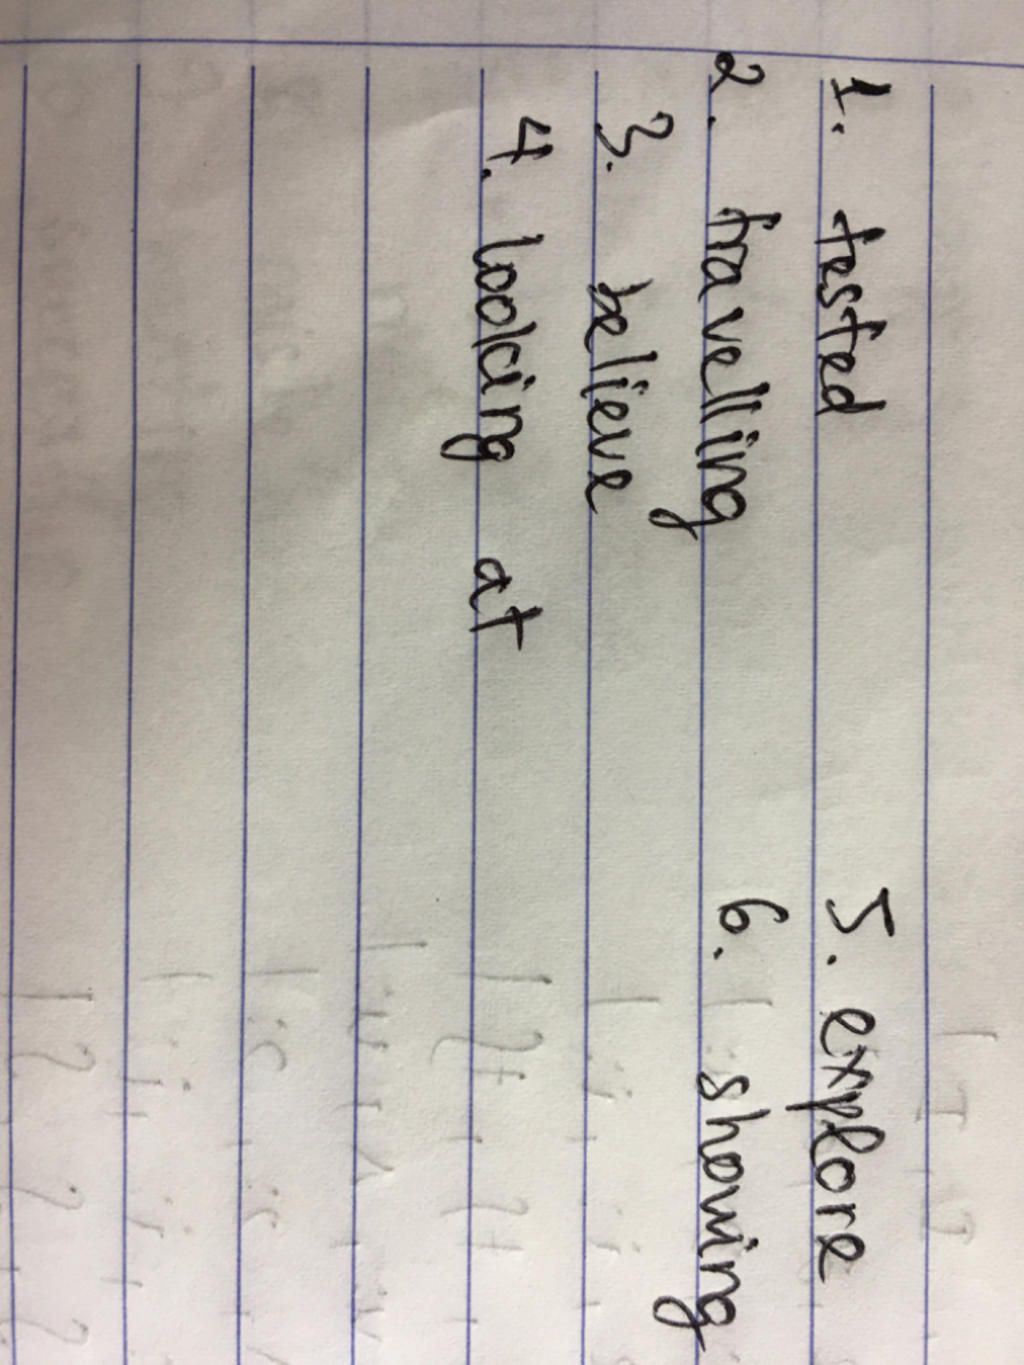 1. tested
2. travelling
3. believe
4. looking at
5. explore
6. showing